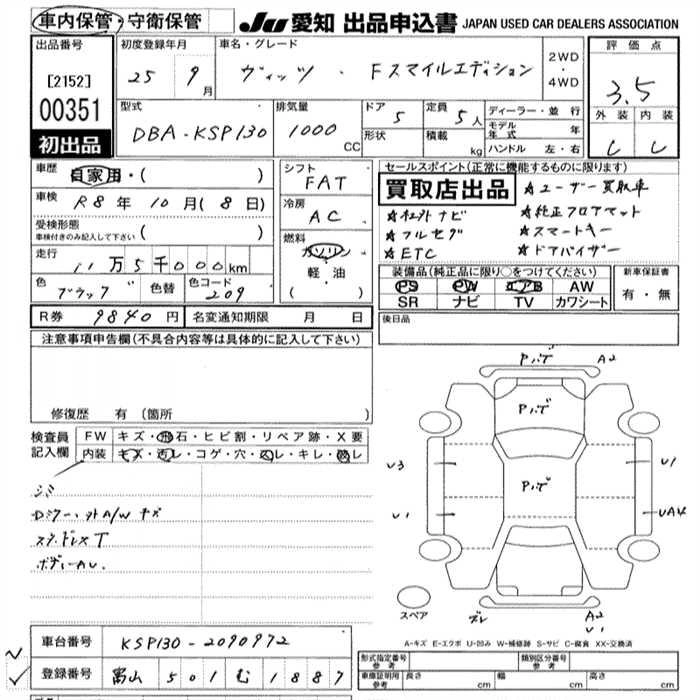 車内保管・守衛保管 JU 愛知 出品申込書 JAPAN USED CAR DEALERS ASSOCIATION
出品番号 [2152] 00351 初出品
初度登録年月 25 9月
車名・グレード ヴィッツ・Fスマイルエディション
2WD・4WD
評価点 3.5
外装 内装
C C
型式 DBA-KSP130
排気量 1000 CC
ドア 5 定員 5人
形状 積載 kg
ディーラー・並行
モデル年式 年
ハンドル 左・右
車歴 自家用・( )
車検 R8年10月(8日)
受検形態 車検付きのみ記入して下さい ( )
走行 11万5千000km
色 ブラック 色替 色コード 209
シフト FAT
冷房 AC
燃料 ガソリン 軽・油 ( )
セールスポイント(正常に機能するものに限ります)
買取店出品
☆ユーザー買取車
☆社外ナビ ☆純正フロアマット
☆フルセグ ☆スマートキー
☆ETC ☆ドアバイザー
装備品(純正品に限り○をつけてください)
PS PW エアB AW
SR ナビ TV カワシート
新車保証書 有・無
R券 9840円 名変通知期限 月 日
後日品
注意事項申告欄(不具合内容等は具体的に記入して下さい)
修復歴 有(箇所 )
検査員記入欄
FW キズ・飛石・ヒビ割・リペア跡・X要
内装 キズ・汚レ・コゲ・穴・スレ・キレ・
シミ
Dミラー・外A/W キズ
スタッドレスT
ボディーAU.
Pハゲ A2
Pハゲ
Pハゲ
U3 U1
U1 UA4
スペア ズレ A2
U1
A-キズ E-エクボ U-凹み W-補修跡 S-サビ C-腐食 XX-交換済
車台番号 KSP130-2090972
登録番号 富山 501 む 1887
形式指定番号 参考 類別区分番号 参考
車庫証明用 参考 長さ cm 幅 cm 高さ cm